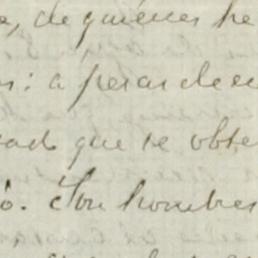 de quienes he
: a pesar de
que se obte
o. Son hombres